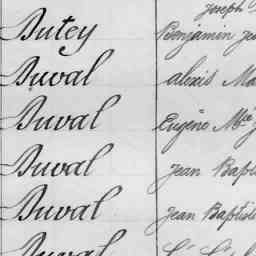 Joseph
Dutey Benjamin Je
Duval Alexis Ma
Duval Eugène Mie J
Duval Jean Bapti
Duval Jean Baptiste
Duval